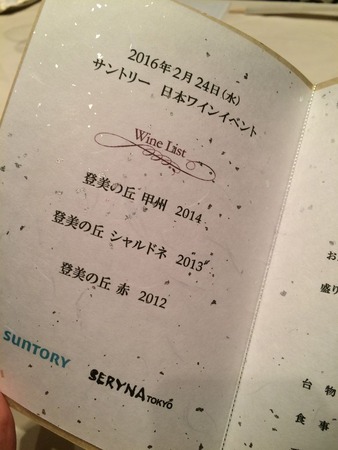 2016年2月24日(水)
サントリー 日本ワインイベント
Wine List
登美の丘 甲州 2014
登美の丘 シャルドネ 2013
登美の丘 赤 2012
SUNTORY
SERYNA TOKYO
お
盛り
台 物
食 事